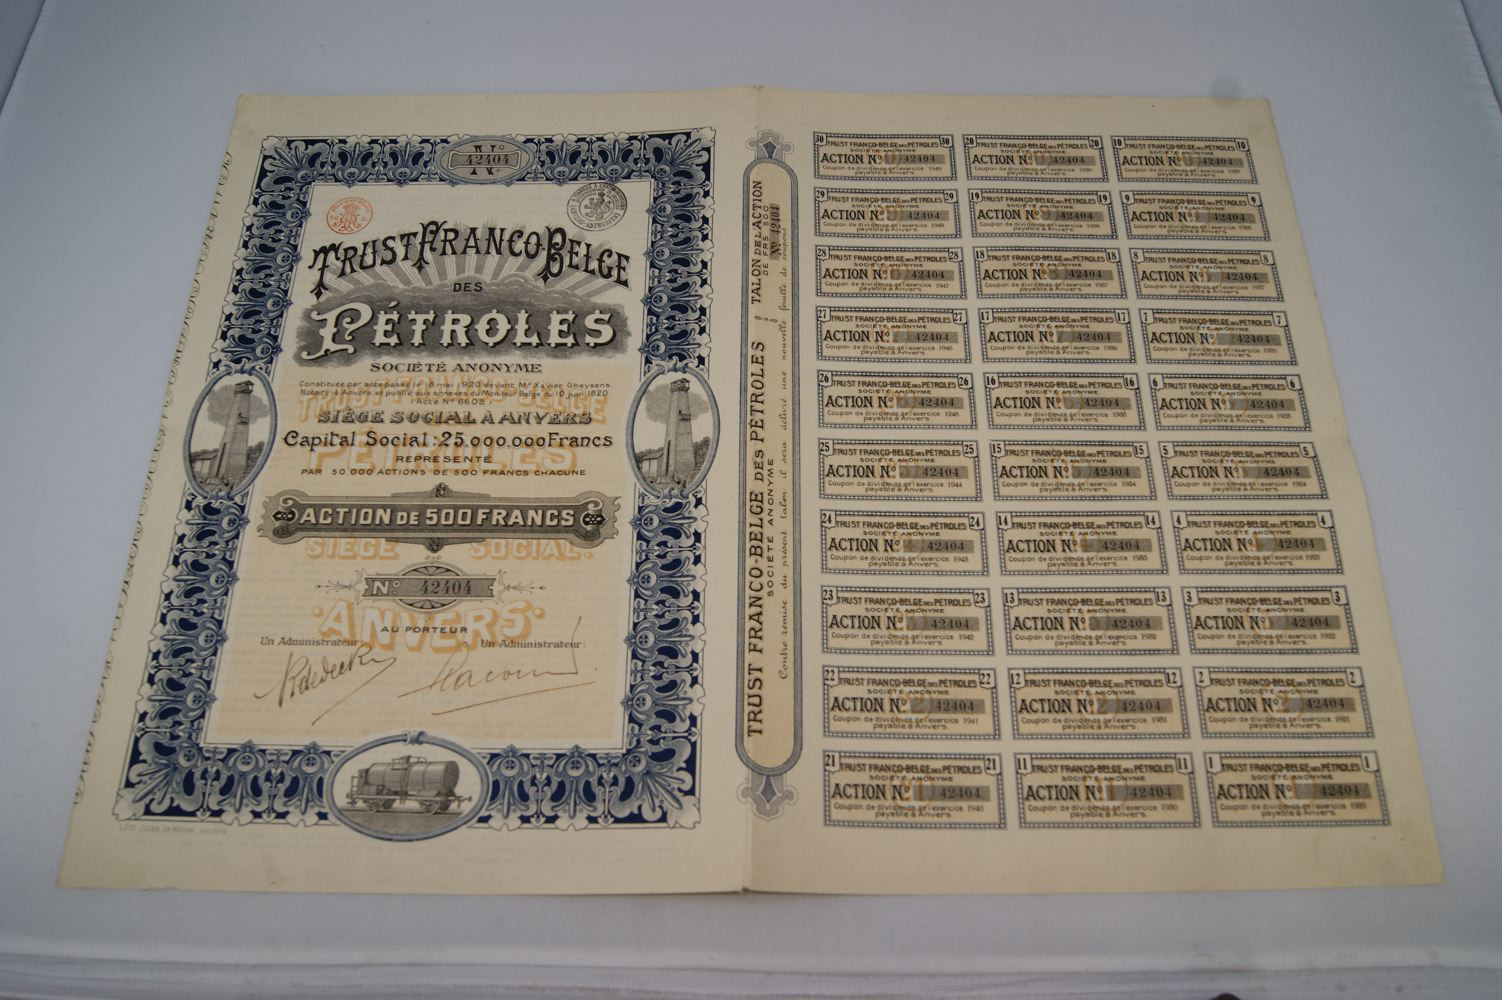 No
42404
TRUST FRANCO-BELGE
DES
PÉTROLES
SOCIÉTÉ ANONYME
Constituée par acte passé le 18 mai 1920 devant Me Xavier Gheysens
Notaire à Anvers et publié aux annexes du Moniteur Belge du 10 juin 1920
l'Acte No 6608
SIÈGE SOCIAL À ANVERS
Capital Social: 25.000.000 Francs
REPRÉSENTÉ
PAR 50.000 ACTIONS DE 500 FRANCS CHACUNE
ACTION DE 500 FRANCS
SIÈGE SOCIAL:
No 42404
ANVERS
AU PORTEUR
Un Administrateur: Un Administrateur:
TRUST FRANCO-BELGE DES PÉTROLES
SOCIÉTÉ ANONYME
TALON DE L'ACTION
DE FRS 500
No 42404
Contre remise du présent talon il sera délivré une nouvelle feuille de coupons
30 TRUST FRANCO-BELGE DES PÉTROLES 30
SOCIÉTÉ ANONYME
ACTION No 42404
Coupon de dividende de l'exercice 1949
payable à Anvers
20 TRUST FRANCO-BELGE DES PÉTROLES 20
SOCIÉTÉ ANONYME
ACTION No 42404
Coupon de dividende de l'exercice 1939
payable à Anvers
10 TRUST FRANCO-BELGE DES PÉTROLES 10
SOCIÉTÉ ANONYME
ACTION No 42404
Coupon de dividende de l'exercice 1929
payable à Anvers
29 TRUST FRANCO-BELGE DES PÉTROLES 29
SOCIÉTÉ ANONYME
ACTION No 42404
Coupon de dividende de l'exercice 1948
payable à Anvers
19 TRUST FRANCO-BELGE DES PÉTROLES 19
SOCIÉTÉ ANONYME
ACTION No 42404
Coupon de dividende de l'exercice 1938
payable à Anvers
9 TRUST FRANCO-BELGE DES PÉTROLES 9
SOCIÉTÉ ANONYME
ACTION No 42404
Coupon de dividende de l'exercice 1928
payable à Anvers
28 TRUST FRANCO-BELGE DES PÉTROLES 28
SOCIÉTÉ ANONYME
ACTION No 42404
Coupon de dividende de l'exercice 1947
payable à Anvers
18 TRUST FRANCO-BELGE DES PÉTROLES 18
SOCIÉTÉ ANONYME
ACTION No 42404
Coupon de dividende de l'exercice 1937
payable à Anvers
8 TRUST FRANCO-BELGE DES PÉTROLES 8
SOCIÉTÉ ANONYME
ACTION No 42404
Coupon de dividende de l'exercice 1927
payable à Anvers
27 TRUST FRANCO-BELGE DES PÉTROLES 27
SOCIÉTÉ ANONYME
ACTION No 42404
Coupon de dividende de l'exercice 1946
payable à Anvers
17 TRUST FRANCO-BELGE DES PÉTROLES 17
SOCIÉTÉ ANONYME
ACTION No 42404
Coupon de dividende de l'exercice 1936
payable à Anvers
7 TRUST FRANCO-BELGE DES PÉTROLES 7
SOCIÉTÉ ANONYME
ACTION No 42404
Coupon de dividende de l'exercice 1926
payable à Anvers
26 TRUST FRANCO-BELGE DES PÉTROLES 26
SOCIÉTÉ ANONYME
ACTION No 42404
Coupon de dividende de l'exercice 1945
payable à Anvers
16 TRUST FRANCO-BELGE DES PÉTROLES 16
SOCIÉTÉ ANONYME
ACTION No 42404
Coupon de dividende de l'exercice 1935
payable à Anvers
6 TRUST FRANCO-BELGE DES PÉTROLES 6
SOCIÉTÉ ANONYME
ACTION No 42404
Coupon de dividende de l'exercice 1925
payable à Anvers
25 TRUST FRANCO-BELGE DES PÉTROLES 25
SOCIÉTÉ ANONYME
ACTION No 42404
Coupon de dividende de l'exercice 1944
payable à Anvers
15 TRUST FRANCO-BELGE DES PÉTROLES 15
SOCIÉTÉ ANONYME
ACTION No 42404
Coupon de dividende de l'exercice 1934
payable à Anvers
5 TRUST FRANCO-BELGE DES PÉTROLES 5
SOCIÉTÉ ANONYME
ACTION No 42404
Coupon de dividende de l'exercice 1924
payable à Anvers
24 TRUST FRANCO-BELGE DES PÉTROLES 24
SOCIÉTÉ ANONYME
ACTION No 42404
Coupon de dividende de l'exercice 1943
payable à Anvers
14 TRUST FRANCO-BELGE DES PÉTROLES 14
SOCIÉTÉ ANONYME
ACTION No 42404
Coupon de dividende de l'exercice 1933
payable à Anvers
4 TRUST FRANCO-BELGE DES PÉTROLES 4
SOCIÉTÉ ANONYME
ACTION No 42404
Coupon de dividende de l'exercice 1923
payable à Anvers
23 TRUST FRANCO-BELGE DES PÉTROLES 23
SOCIÉTÉ ANONYME
ACTION No 42404
Coupon de dividende de l'exercice 1942
payable à Anvers
13 TRUST FRANCO-BELGE DES PÉTROLES 13
SOCIÉTÉ ANONYME
ACTION No 42404
Coupon de dividende de l'exercice 1932
payable à Anvers
3 TRUST FRANCO-BELGE DES PÉTROLES 3
SOCIÉTÉ ANONYME
ACTION No 42404
Coupon de dividende de l'exercice 1922
payable à Anvers
22 TRUST FRANCO-BELGE DES PÉTROLES 22
SOCIÉTÉ ANONYME
ACTION No 42404
Coupon de dividende de l'exercice 1941
payable à Anvers
12 TRUST FRANCO-BELGE DES PÉTROLES 12
SOCIÉTÉ ANONYME
ACTION No 42404
Coupon de dividende de l'exercice 1931
payable à Anvers
2 TRUST FRANCO-BELGE DES PÉTROLES 2
SOCIÉTÉ ANONYME
ACTION No 42404
Coupon de dividende de l'exercice 1921
payable à Anvers
21 TRUST FRANCO-BELGE DES PÉTROLES 21
SOCIÉTÉ ANONYME
ACTION No 42404
Coupon de dividende de l'exercice 1940
payable à Anvers
11 TRUST FRANCO-BELGE DES PÉTROLES 11
SOCIÉTÉ ANONYME
ACTION No 42404
Coupon de dividende de l'exercice 1930
payable à Anvers
1 TRUST FRANCO-BELGE DES PÉTROLES 1
SOCIÉTÉ ANONYME
ACTION No 42404
Coupon de dividende de l'exercice 1920
payable à Anvers